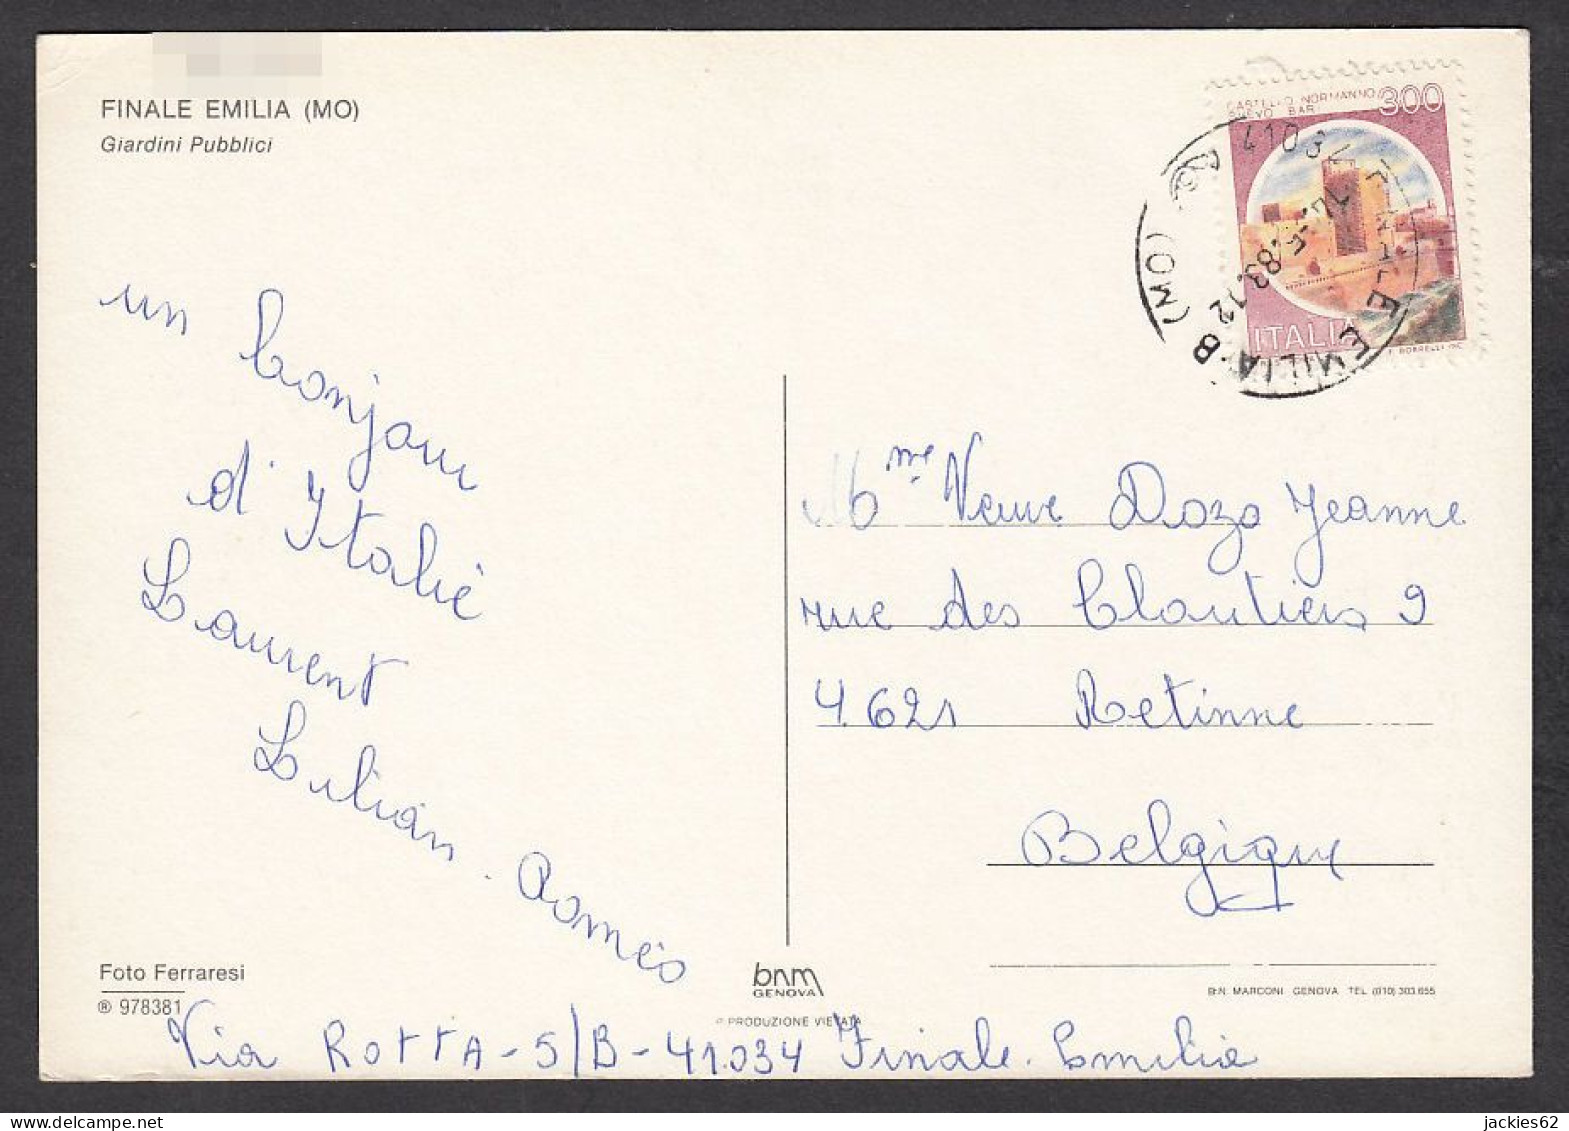 FINALE EMILIA (MO)
Giardini Pubblici
CASTELLO NORMANNO
SVEVO BARI
300
ITALIA
41034 FINALE EMILIA-B (MO)
83.12
un bonjour
d'Italie
Laurent
Lilian. Roméo
Mme Veuve Dozo Jeanne
rue des Cloutiers 9
4621 Retinne
Belgique
Foto Ferraresi
® 978381
bnm
GENOVA
RIPRODUZIONE VIETATA
B.N. MARCONI GENOVA TEL (010) 303.655
Via ROTTA - 5/B - 41.034 Finale. Emilia
jackies62